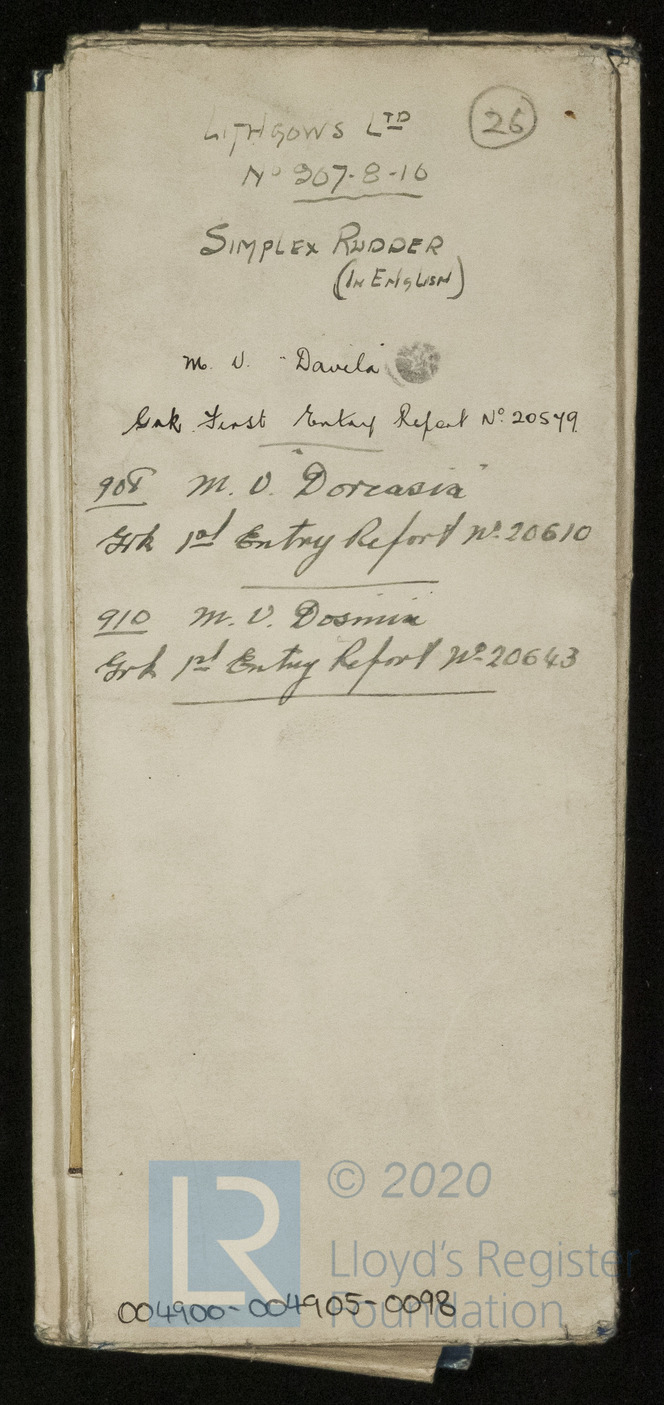 26
LITHGOWS LTD
No 907-8-10
SIMPLEX RUDDER
(IN ENGLISH)
M. V. "Davila"
Grk First Entry Report No. 20579
908 M. V. "Dorcasia"
Grk 1st Entry Report No. 20610
910 M. V. Dosinia
Grk 1st Entry Report No. 20643
LR
© 2020
Lloyd's Register
Foundation
004900-004905-0098